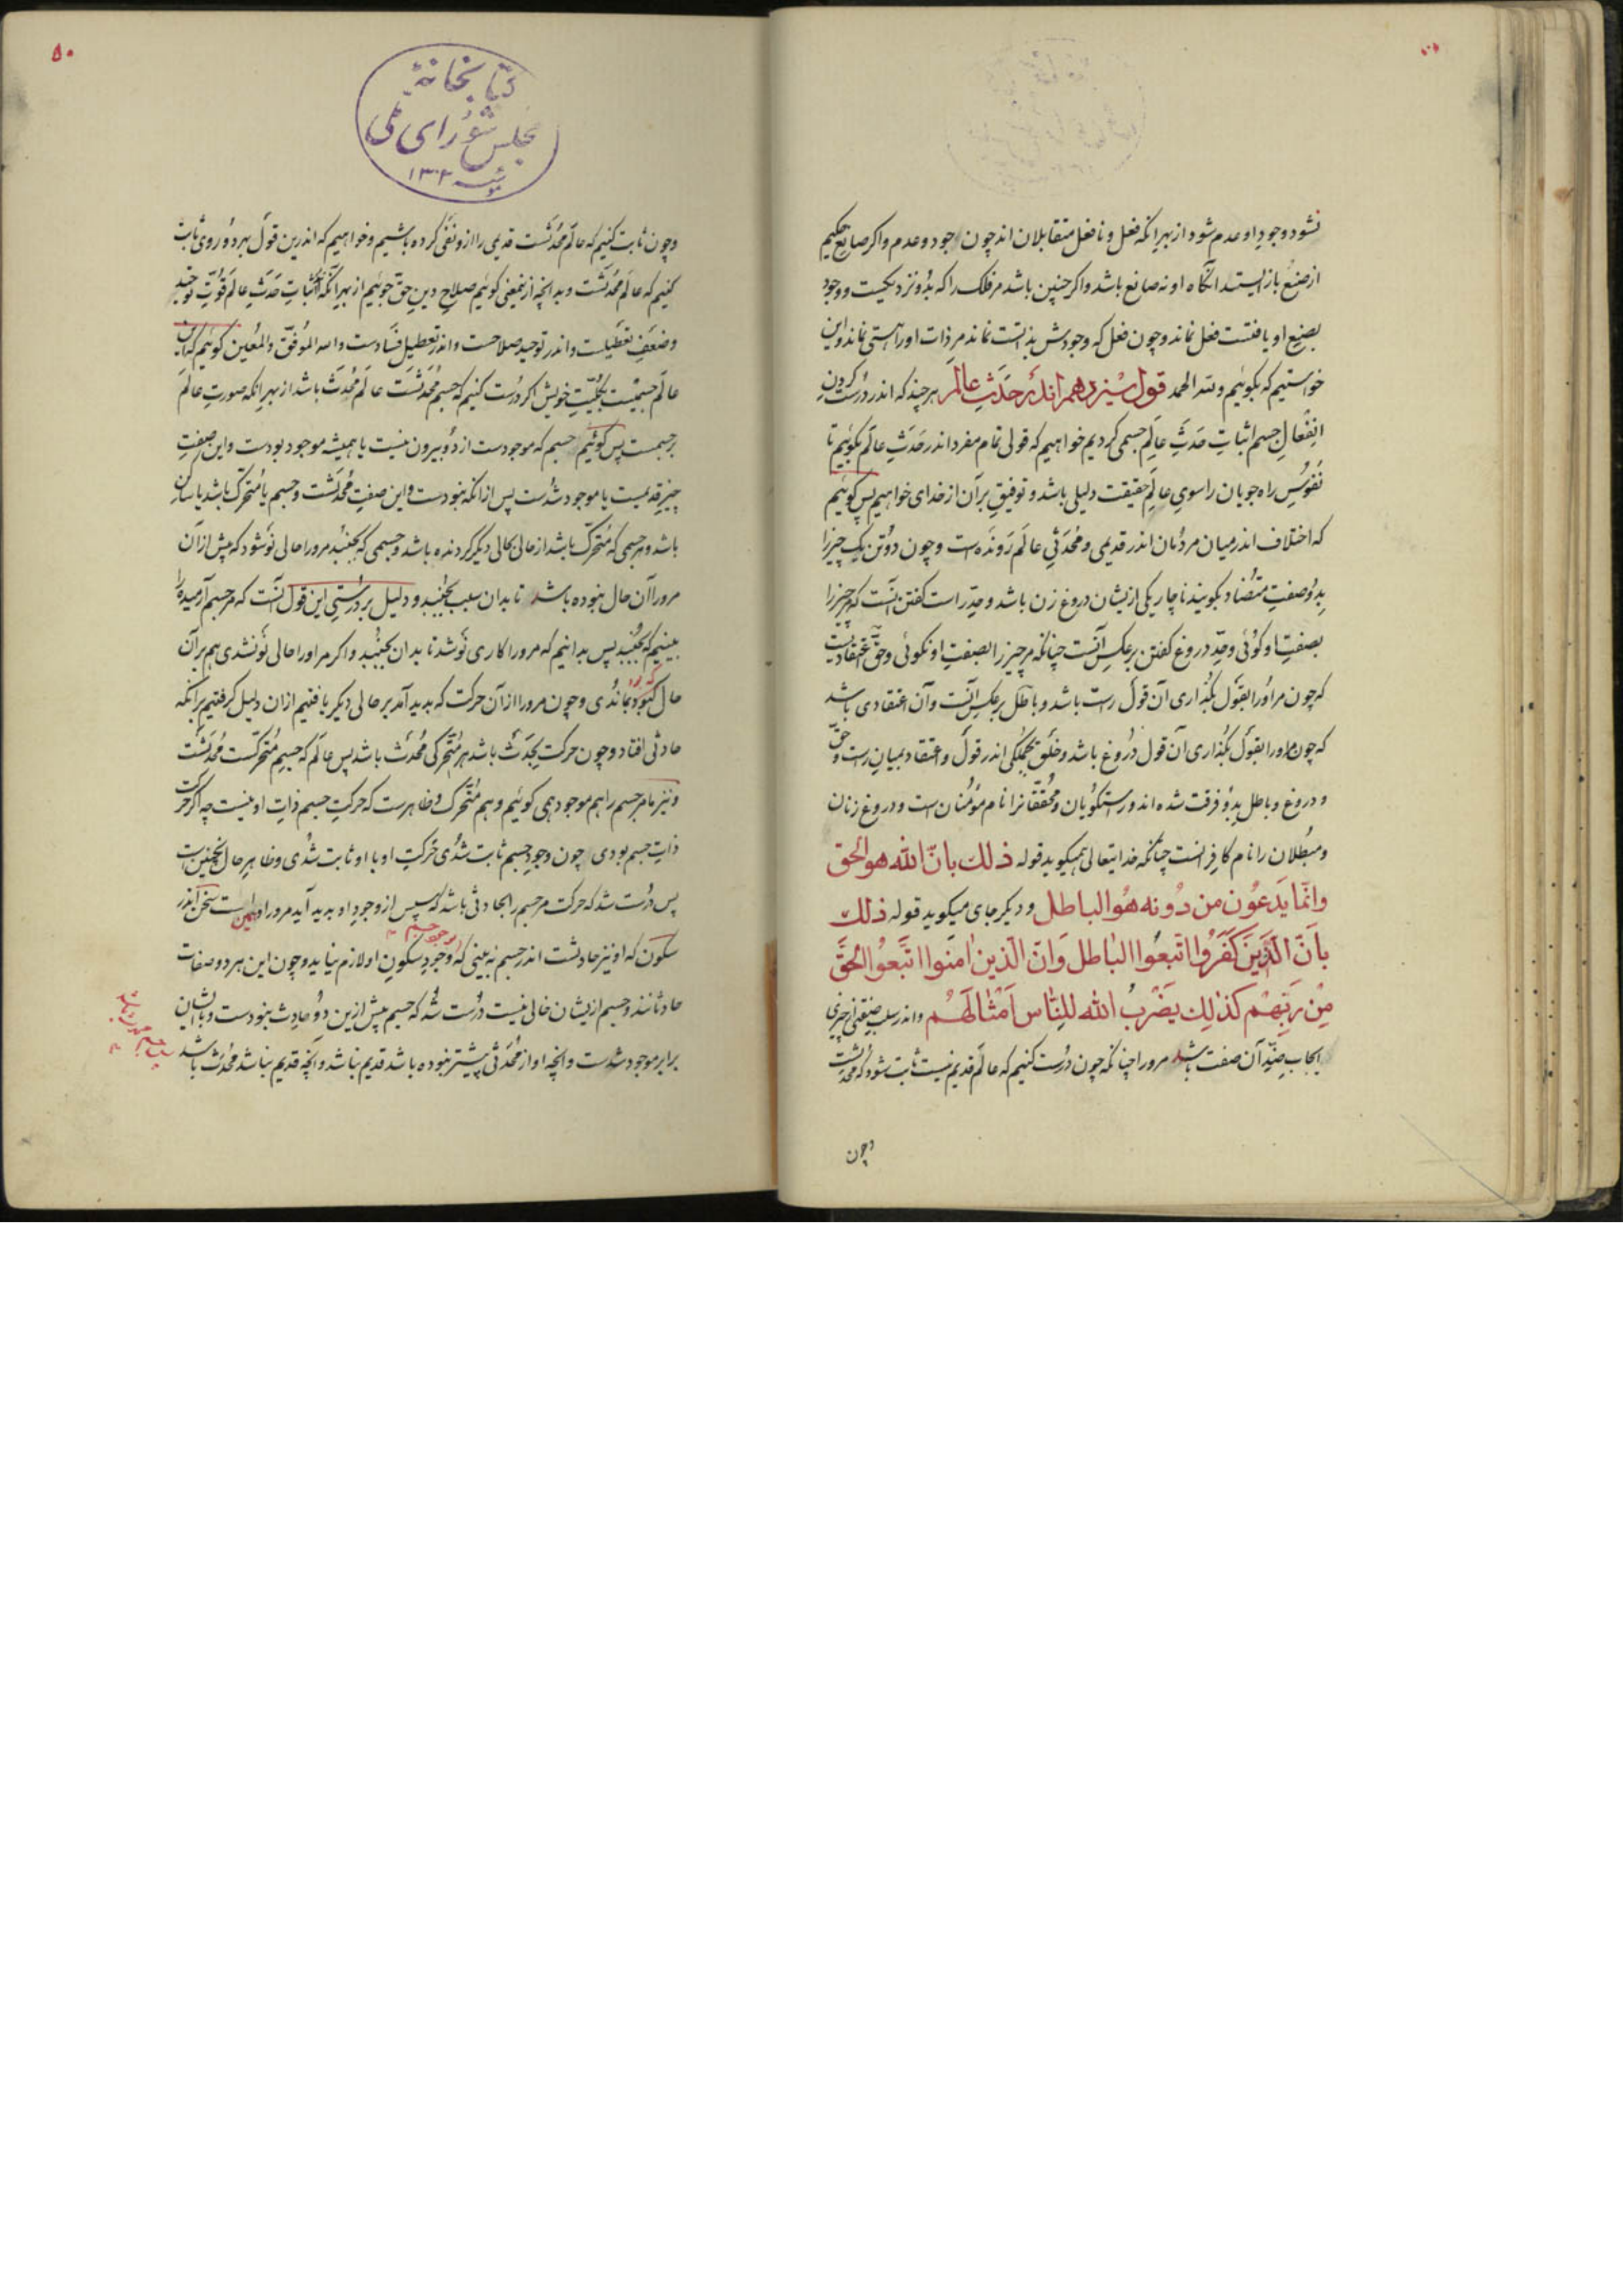 نشود وجود او عدم شود از بهر آنکه فعل و نافعل متقابلان اند چون وجود و عدم و اکر صانع حکیم
از صنع باز ایستد آنکاه او نه صانع باشد و اکر چنین باشد مر فلک را که بدو نزدیکیست و وجود
بصنع او یافتست فعل نماند و چون فعل که وجودش بذاتست نماند مر ذات او را هستی نماند و این
خواستیم که بکوئیم ولله الحمد قول سیزدهم اندر حدث عالم هر چند که اندر درست کردن
انفعال جسم اثبات حدث عالم جسمی کردیم خواهیم که قولی تمام مفرد اندر حدث عالم بکوئیم تا
نفوس راه جویان را سوی عالم حقیقت دلیلی باشد و توفیق بر آن از خدای خواهیم پس کوئیم
که اختلاف اندر میان مردمان اندر قدیمی و محدثی عالم رونده است و چون دو تن یک چیز را
بدو صفت متضاد بکویند ناچار یکی از ایشان دروغ زن باشد و حد راست کفتن آنست که مر چیز را
بصفت او کوئی و حد دروغ کفتن بر عکس آنست چنانکه مر چیز را بصفت او نکوئی و حق اعتقادیست
که چون مر او را بقول بکذاری آن قول راست باشد و باطل بر عکس آنست و آن اعتقادی باشد
که چون مر او را بقول بکذاری آن قول دروغ باشد و خلق بجملکی اندر قول و اعتقاد بمیان راست و حق
و دروغ و باطل بدو فرقت شده اند و راستکویان و محققانرا نام مؤمنان است و دروغ زنان
و مبطلان را نام کافرانست چنانکه خدایتعالی همیکوید قوله ذلك بانّ الله هو الحق
وانّما يدعون من دونه هو الباطل و دیکر جای میکوید قوله ذلك
بأنّ الّذين كفروا اتّبعوا الباطل وانّ الّذين امنوا اتّبعوا الحقّ
من ربّهم كذلك يضرب الله للنّاس امثالهم و اندر سلب صفتی از چیزی
ایجاب ضدّ آن صفت باشد مر او را چنانکه چون درست کنیم که عالم قدیم نیست ثابت شود که محدثست
وچون
۵۰
کتابخانهٔ
مجلس شورای ملی
۱۳۰۲
و چون ثابت کنیم که عالم محدثست قدیمی را ازو نفی کرده باشیم و خواهیم که اندرین قول بهر دو روی ثابت
کنیم که عالم محدثست و بدانچه ازین معنی کوئیم صلاح دین حق جوئیم از بهر آنکه اثبات حدث عالم قوّت توحید
و ضعف تعطیلست و اندر توحید صلاحست و اندر تعطیل فسادست والله الموفق والمعین کوئیم که این
عالم جسمیست بکلیّت خویش اکر درست کنیم که جسم محدثست عالم محدث باشد از بهر آنکه صورت عالم
بر جسمست پس کوئیم جسم که موجودست از دو بیرون نیست یا همیشه موجود بودست و این صفت
چیز قدیمست یا موجود شدست پس از آنکه نبودست و این صفت محدثست و جسم یا متحرک باشد یا ساکن
باشد و هر جسمی که متحرک باشد از حالی بحالی دیکر کردنده باشد و جسمی که بجنبد مر او را حالی نو شود که پیش از آن
مر او را آن حال نبوده باشد تا بدان سبب بجنبد و دلیل بر درستی این قول آنست که مر جسم آرمیده را
ببینیم که بجنبد پس بدانیم که مر او را کاری نو شد تا بدان بجنبید و اکر مر او را حالی نو نشدی هم بر آن
حال که بود بماندی و چون مر او را از آن حرکت که بدید آمد بر حالی دیکر یافتیم از آن دلیل کرفتیم بر آنکه
حادثی افتاد و چون حرکت بحدث باشد هر متحرکی محدث باشد پس عالم که جسم متحرکست محدثست
و نیز ما مر جسم را هم موجود همی کوئیم و هم متحرک و ظاهرست که حرکت جسم ذات او نیست چه اکر حرکت
ذات جسم بودی چون وجود جسم ثابت شدی حرکت او با او ثابت شدی و ظاهر حال نه چنین است
پس درست شد که حرکت مر جسم را بحادثی باشد که سپس از وجود او بدید آید مر او را و همین است سخن اندر
سکون که او نیز حادثست اندر جسم نه بینی که از وجود جسم وجود سکون او لازم نیاید و چون این هر دو صفات
حادثانند و جسم از یشان خالی نیست درست شد که جسم پیش ازین دو حادث نبودست و با ایشان
برابر موجود شدست و آنچه او از محدثی پیشتر نبوده باشد قدیم نباشد و آنچه قدیم نباشد محدث باشد